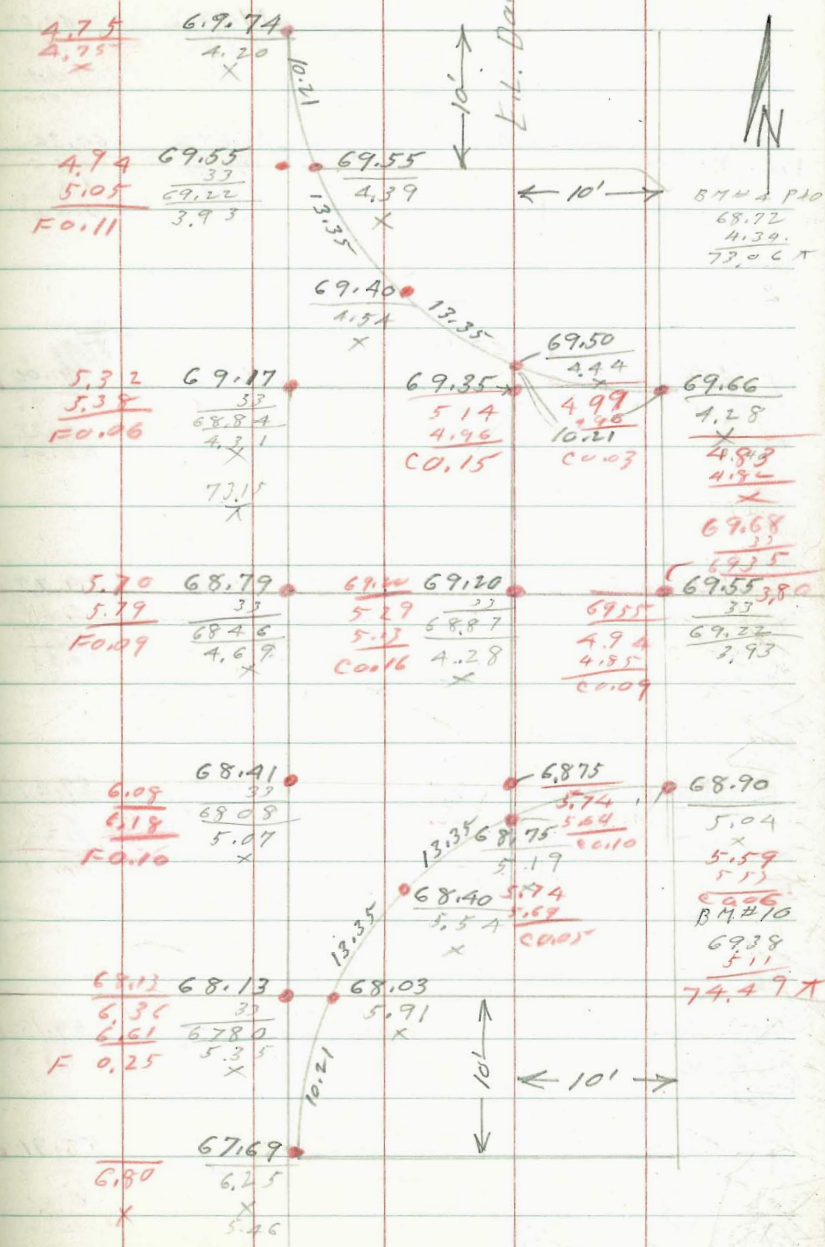 4.75
4.75
x
69.74
4.20
x
10.21
10'
N
4.94
5.05
F0.11
69.55
33
69.22
3.93
69.55
4.39
x
13.35
10'
BM#4
68.72
4.34
73.06 π
69.40
4.54
x
13.35
69.50
4.44
x
4.99
4.96
C0.03
5.32
5.38
F0.06
69.17
33
68.84
4.31
x
73.15
π
69.35
5.14
4.96
C0.15
10.21
69.66
4.28
x
4.83
4.82
x
69.68
33
69.35
3.80
5.70
5.79
F0.09
68.79
33
68.46
4.69
x
5.29
5.13
C0.16
69.20
33
68.87
4.28
x
69.55
4.94
4.85
C0.09
69.55
33
69.22
3.93
6.08
6.18
F0.10
68.41
33
68.08
5.07
x
68.75
5.74
5.64
C0.10
68.90
5.04
x
5.59
5.53
C0.06
13.35
68.75
5.19
x
5.74
5.69
C0.05
68.40
5.54
x
BM#10
69.38
5.11
74.49 π
13.35
68.13
6.36
6.61
F 0.25
68.13
33
67.80
5.35
x
68.03
5.91
x
10.21
10'
10'
6.80
x
67.69
6.25
x
5.46